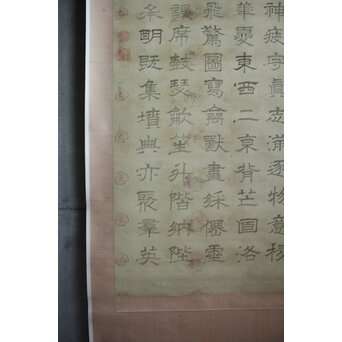 神疲守眞志滿逐物意移
華夏東西二京背芒面洛
飛驚圖寫禽獸畫綵僊靈
設席鼓瑟吹笙升階納陛
承明既集墳典亦聚羣英